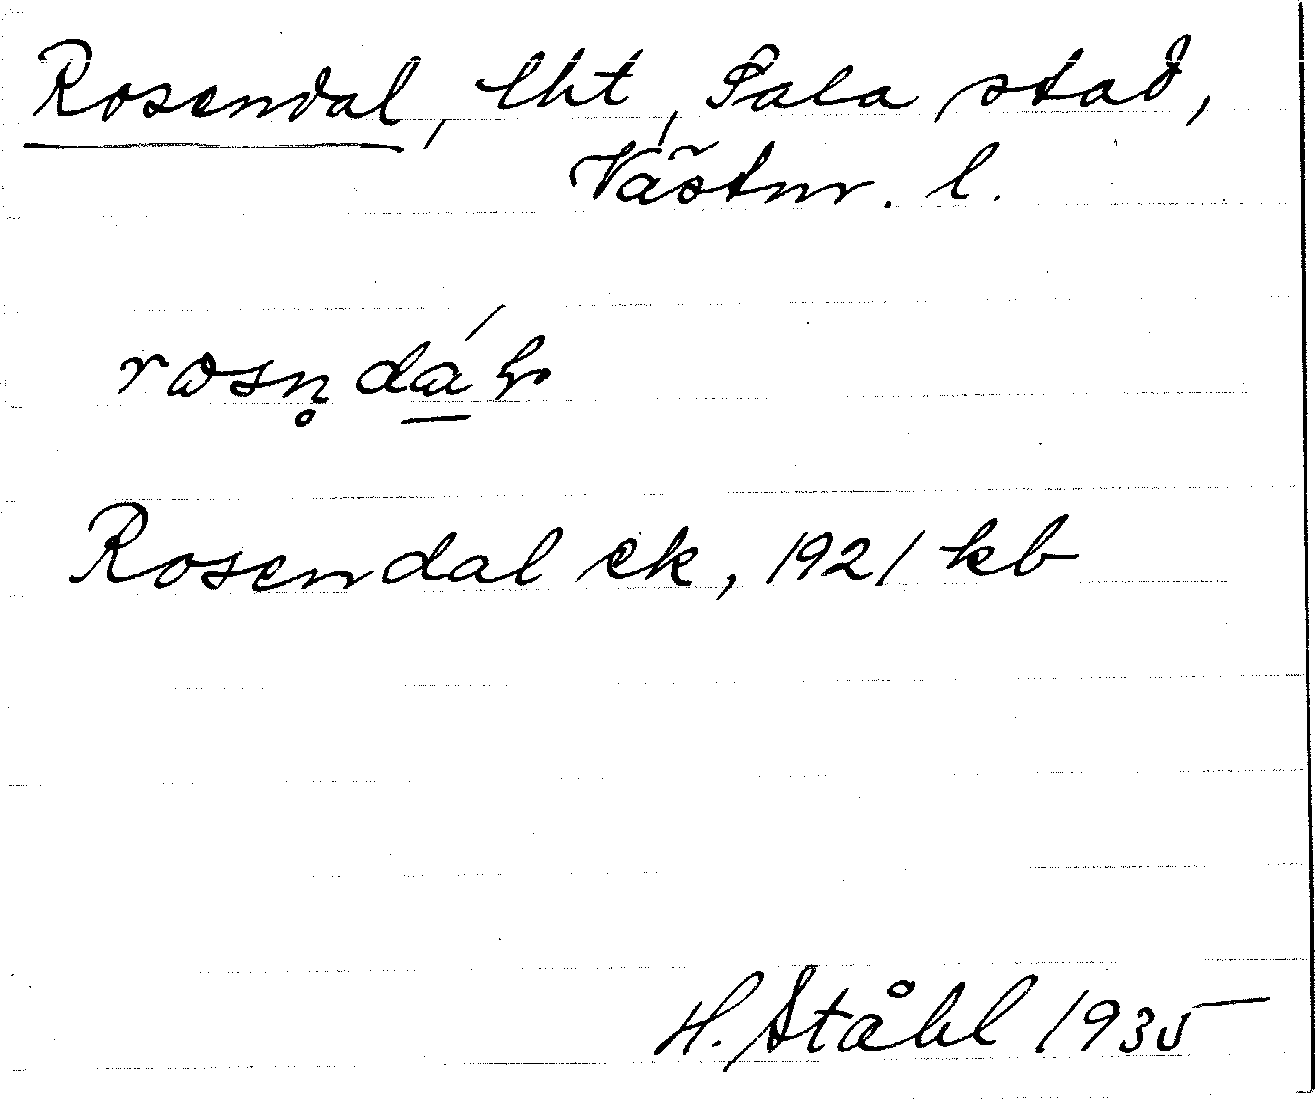 Rosendal, lht, Sala stad,
Västm. l.
rosn̥dá̱l
Rosendal ek, 1921 kb
H. Ståhl 1935